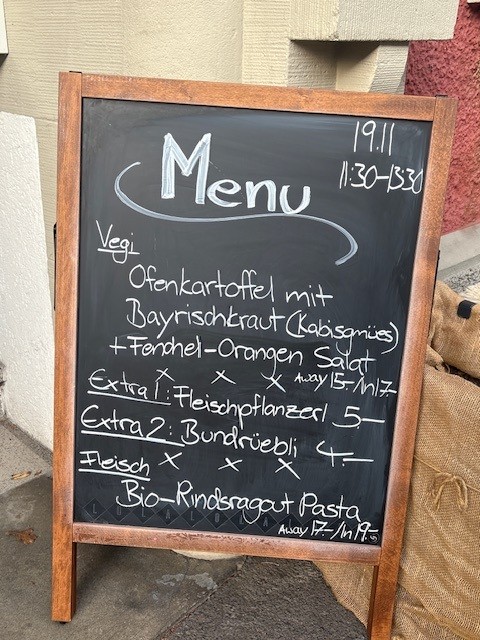 19.11
11:30-13:30
Menu
Vegi
Ofenkartoffel mit
Bayrischkraut (Kabisgmües)
+ Fenchel-Orangen Salat
x x x Away 15.-/In 17.-
Extra 1: Fleischpflanzerl 5.-
Extra 2: Bundrüebli 4.-
Fleisch x x x
Bio-Rindsragout Pasta
Away 17.-/In 19.-